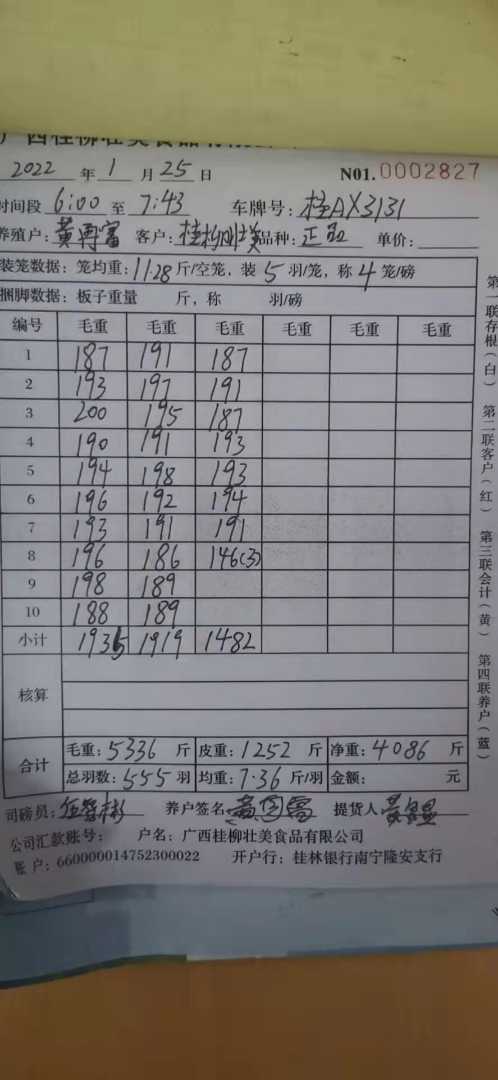 广西桂柳壮美食品有限公司
2022 年 1 月 25 日 N01.0002827
时间段 6:00 至 7:43 车牌号: 桂AX3131
养殖户: 黄再富 客户: 桂柳壮美 品种: 正 单价:
装笼数据: 笼均重: 11.28 斤/空笼, 装 5 羽/笼, 称 4 笼/磅
捆脚数据: 板子重量 斤, 称 羽/磅
编号 毛重 毛重 毛重 毛重 毛重 毛重
1 187 191 187
2 193 197 191
3 200 195 187
4 190 191 193
5 194 198 193
6 196 192 194
7 193 191 191
8 196 186 146(3)
9 198 189
10 188 189
小计 1935 1919 1482
核算
合计 毛重: 5336 斤 皮重: 1252 斤 净重: 4086 斤
总羽数: 555 羽 均重: 7.36 斤/羽 金额: 元
司磅员: 养户签名: 提货人:
公司汇款账号: 户名: 广西桂柳壮美食品有限公司
账户: 660000014752300022 开户行: 桂林银行南宁隆安支行
第一联存根(白) 第二联客户(红) 第三联会计(黄) 第四联养户(蓝)